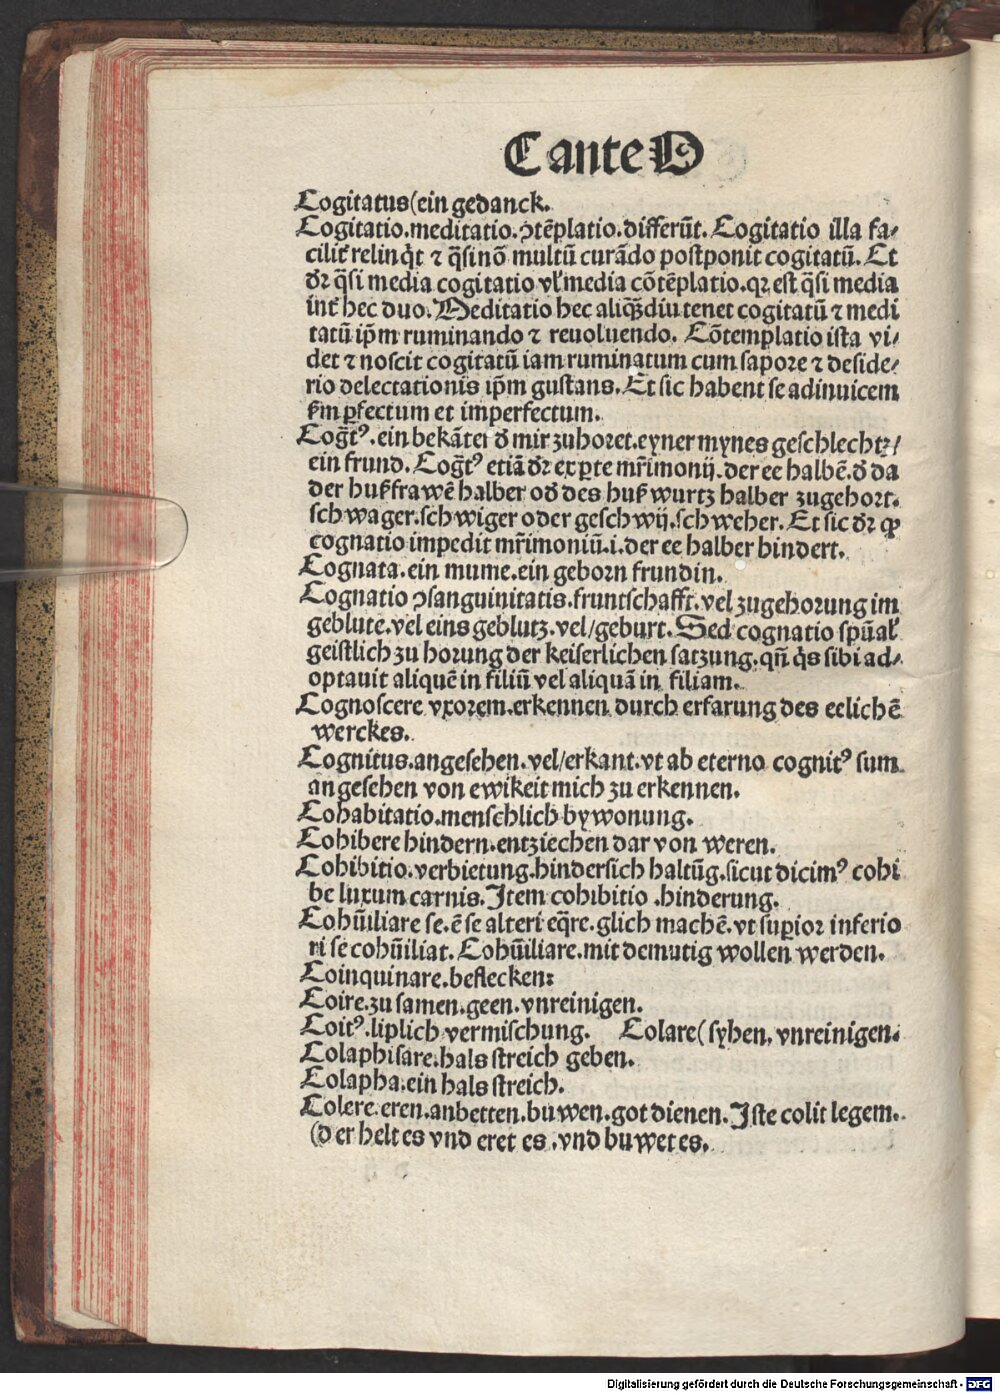 C ante O
Cogitatus(ein gedanck.
Cogitatio.meditatio.ꝯtẽplatio.differũt. Cogitatio illa fa⸗
cilit̛ relinq̇t ⁊ q̃si nõ multũ curãdo postponit cogitatũ. Et
dr̃ q̃si media cogitatio vl̛ media cõtẽplatio.qꝛ est q̃si media
int̛ hec duo. Meditatio hec aliqͣ̃diu tenet cogitatũ ⁊ medi
tatũ ip̃m ruminando ⁊ reuoluendo. Cõtemplatio ista vi⸗
det ⁊ noscit cogitatũ iam ruminatum cum sapore ⁊ deside⸗
rio delectationis ip̃m gustans. Et sic habent se adinuicem
ẜm ꝑfectum et imperfectum.
Cog̃tꝰ.ein bekãter d̛ mir zuhoret.eyner mynes geschlechtz/
ein frund. Cog̃tꝰ etiã dr̃ ex ꝑte mr̃imonij.der ee halbẽ.d̛ da
der huß frawẽ halber od̛ des huß wurtz halber zugehort.
schwager.schwiger oder geschwij.schweher. Et sic dr̃ ꝙ
cognatio impedit mr̃imoniũ.i.der ee halber hindert.
Cognata.ein mume.ein geborn frundin.
Cognatio ꝯsanguinitatis.fruntschafft.vel zugehorung im
geblute.vel eins geblutz.vel/geburt. Sed cognatio spũal̛
geistlich zu horung der keiserlichen satzung.qñ q̇s sibi ad⸗
optauit aliquẽ in filiũ vel aliquã in filiam.
Cognoscere vxorem.erkennen durch erfarung des eelichẽ
werckes.
Cognitus.angesehen.vel/erkant.vt ab eterno cognitꝰ sum
angesehen von ewikeit mich zu erkennen.
Cohabitatio.menschlich bywonung.
Cohibere hindern.entziechen dar von weren.
Cohibitio.verbietung.hindersich haltũg.sicut dicimꝰ cohi
be luxum carnis. Item cohibitio .hinderung.
Cohũiliare se.ẽ se alteri eq̃re.glich machẽ.vt suꝑior inferio
ri se cohũiliat. Cohũiliare.mit demutig wollen werden.
Coinquinare.beflecken:
Coire.zu samen.geen.vnreinigen.
Coitꝰ.liplich vermischung. Colare(syhen.vnreinigen.
Colaphisare.hals streich geben.
Colapha.ein hals streich.
Colere.eren.anbetten.buwen.got dienen. Iste colit legem.
(d er helt es vnd eret es .vnd buwet es.
Digitalisierung gefördert durch die Deutsche Forschungsgemeinschaft - DFG